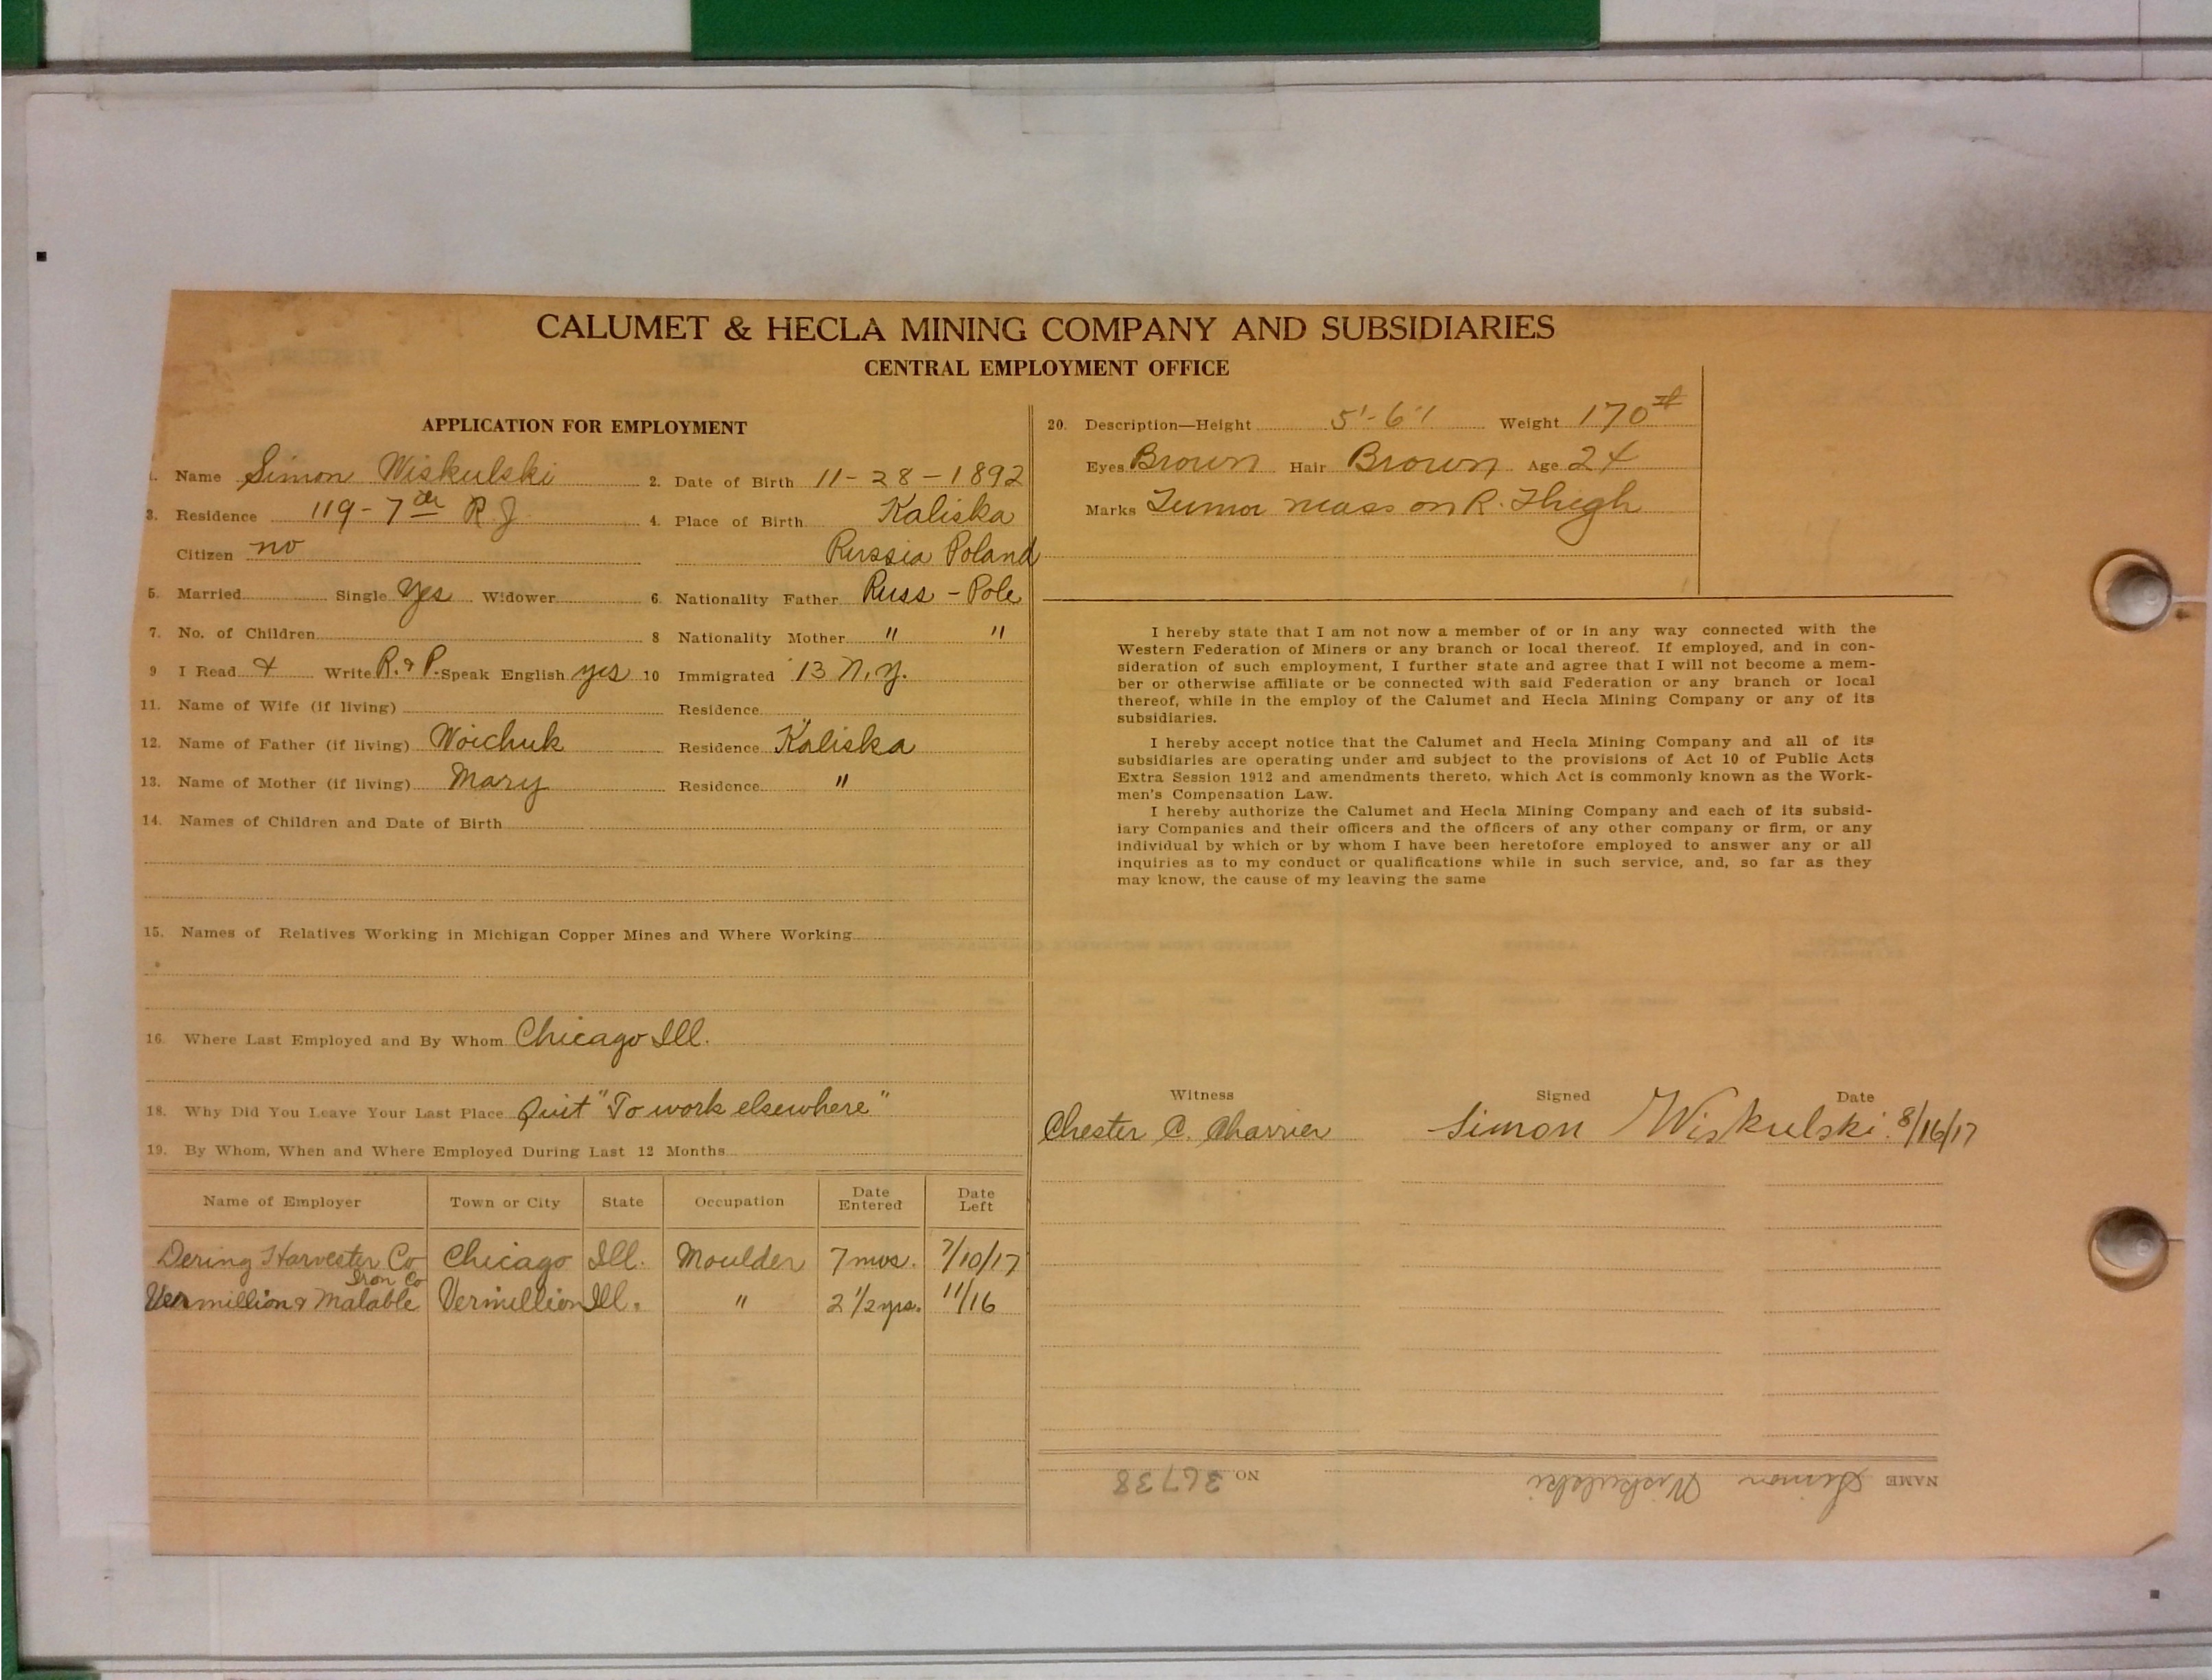 CALUMET & HECLA MINING COMPANY AND SUBSIDIARIES
CENTRAL EMPLOYMENT OFFICE
APPLICATION FOR EMPLOYMENT
1. Name Simon Wiskulski 2. Date of Birth 11-28-1892
3. Residence 119-7th R J 4. Place of Birth Kaliska
Citizen no Russia Poland
5. Married Single Yes Widower 6. Nationality Father Russ - Pole
7. No. of Children 8 Nationality Mother " "
9 I Read & Write R. & P. Speak English yes 10 Immigrated '13 N.Y.
11. Name of Wife (if living) Residence
12. Name of Father (if living) Woichuk Residence Kaliska
13. Name of Mother (if living) Mary Residence "
14. Names of Children and Date of Birth
15. Names of Relatives Working in Michigan Copper Mines and Where Working
16. Where Last Employed and By Whom Chicago Ill.
18. Why Did You Leave Your Last Place Quit "To work elsewhere"
19. By Whom, When and Where Employed During Last 12 Months
Name of Employer Town or City State Occupation Date Entered Date Left
Dering Harvester Co Chicago Ill. Moulder 7 mos. 7/10/17
Iron Co
Vermillion & Malable Vermillion Ill. " 2 1/2 yrs. 11/16
20. Description—Height 5'-6" Weight 170#
Eyes Brown Hair Brown Age 24
Marks Tumor mass on R. Thigh
I hereby state that I am not now a member of or in any way connected with the
Western Federation of Miners or any branch or local thereof. If employed, and in con-
sideration of such employment, I further state and agree that I will not become a mem-
ber or otherwise affiliate or be connected with said Federation or any branch or local
thereof, while in the employ of the Calumet and Hecla Mining Company or any of its
subsidiaries.
I hereby accept notice that the Calumet and Hecla Mining Company and all of its
subsidiaries are operating under and subject to the provisions of Act 10 of Public Acts
Extra Session 1912 and amendments thereto, which Act is commonly known as the Work-
men's Compensation Law.
I hereby authorize the Calumet and Hecla Mining Company and each of its subsid-
iary Companies and their officers and the officers of any other company or firm, or any
individual by which or by whom I have been heretofore employed to answer any or all
inquiries as to my conduct or qualifications while in such service, and, so far as they
may know, the cause of my leaving the same
Witness Signed Date
Chester C. Charrier Simon Wiskulski. 8/16/17
NAME Simon Wiskulski NO. 36738